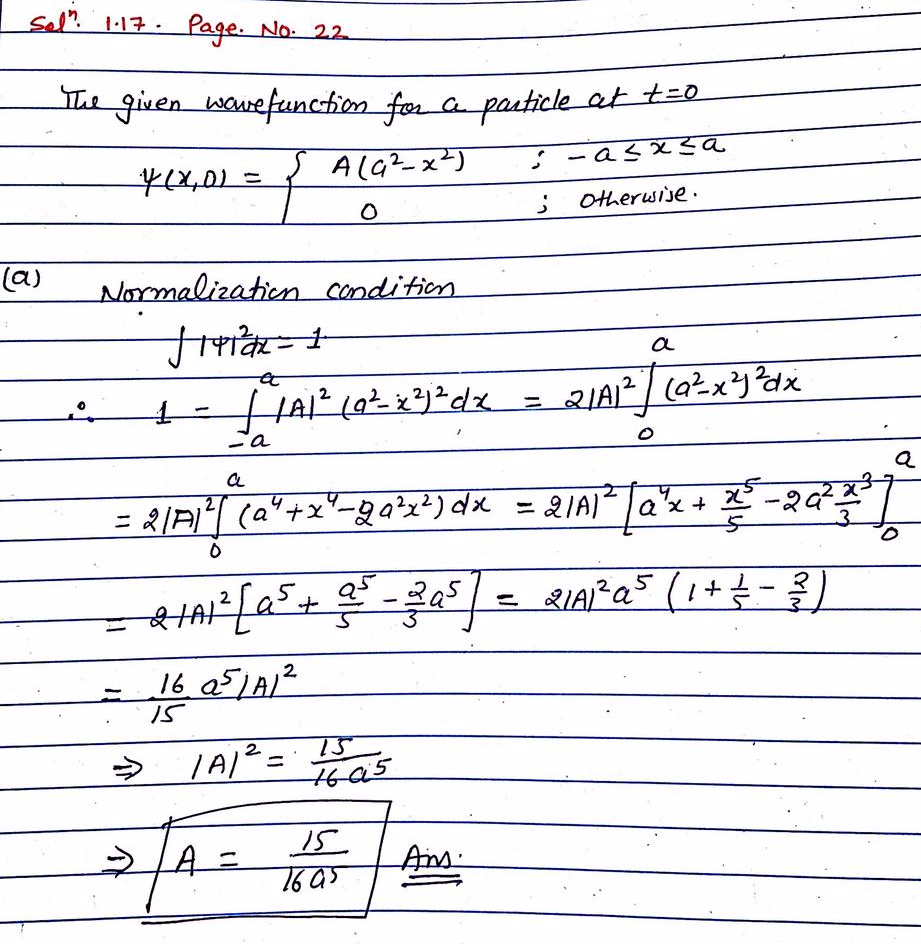 Solⁿ. 1.17. Page. No. 22
The given wavefunction for a particle at t=0
ψ(x,0) = { A(a²-x²) ; -a ≤ x ≤ a
0 ; Otherwise.
(a) Normalization condition
∫|ψ|²dx = 1
∴ 1 = ∫_{-a}^{a} |A|² (a²-x²)² dx = 2|A|² ∫_{0}^{a} (a²-x²)² dx
= 2|A|² ∫_{0}^{a} (a⁴+x⁴-2a²x²) dx = 2|A|² [a⁴x + x⁵/5 - 2a² x³/3]_{0}^{a}
= 2|A|² [a⁵ + a⁵/5 - 2/3 a⁵] = 2|A|²a⁵ (1 + 1/5 - 2/3)
= 16/15 a⁵|A|²
⇒ |A|² = 15/16a⁵
⇒ A = 15/16a⁵ Ans.